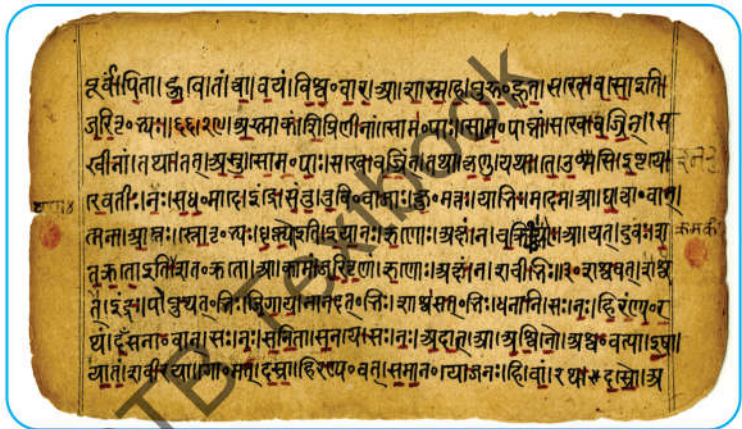 पूर्वं।पिता।हुवे।तं।त्वा।वयं।विश्व॰वार।आ।शास्महे।पुरु॰हूत।सखे।वसो इति।
जरितृ॰भ्यः॥ अस्माकं।शिप्रिणीनां।सोम॰पाः।सोम॰पाव्नां।सखे।वज्रिन्।स
खीनां॥तथा।तत्।अस्तु।सोम॰पाः।सखे।वज्रिन्।तथा।कृणु।यथा।ते।उश्मसि।इष्टये॥
रेवतीः।नः।सध॰मादे।इंद्रे।संतु।तुवि॰वाजाः।क्षु॰मंतः।याभिः।मदेम॥आ।घ।त्वा॰वान्।
त्मना।आप्तः।स्तोतृ॰भ्यः।धृष्णो इति।इयानः।ऋणोः।अक्षं।न।चक्र्योः॥आ।यत्।दुवः।श
तक्रतो इति शत॰क्रतो।आ।कामं।जरितॄणां।ऋणोः।अक्षं।न।शचीभिः॥ शश्वत्।
इंद्रः।पोप्रुथत्॰भिः।जिगाय।नानदत्॰भिः।शाश्वसत्॰भिः।धनानि।सः।नः।हिरण्य॰र
थं।दंसना॰वान्।सः।नः।सनिता।सनये।सः।नः।अदात्॥आ।अश्विनौ।अश्व॰वत्या।इषा।
यातं।शवीरया।गो॰मत्।दस्रा।हिरण्य॰वत्॥समान॰योजनः।हि।वां।रथः।दस्रौ।अ
TB Textbook